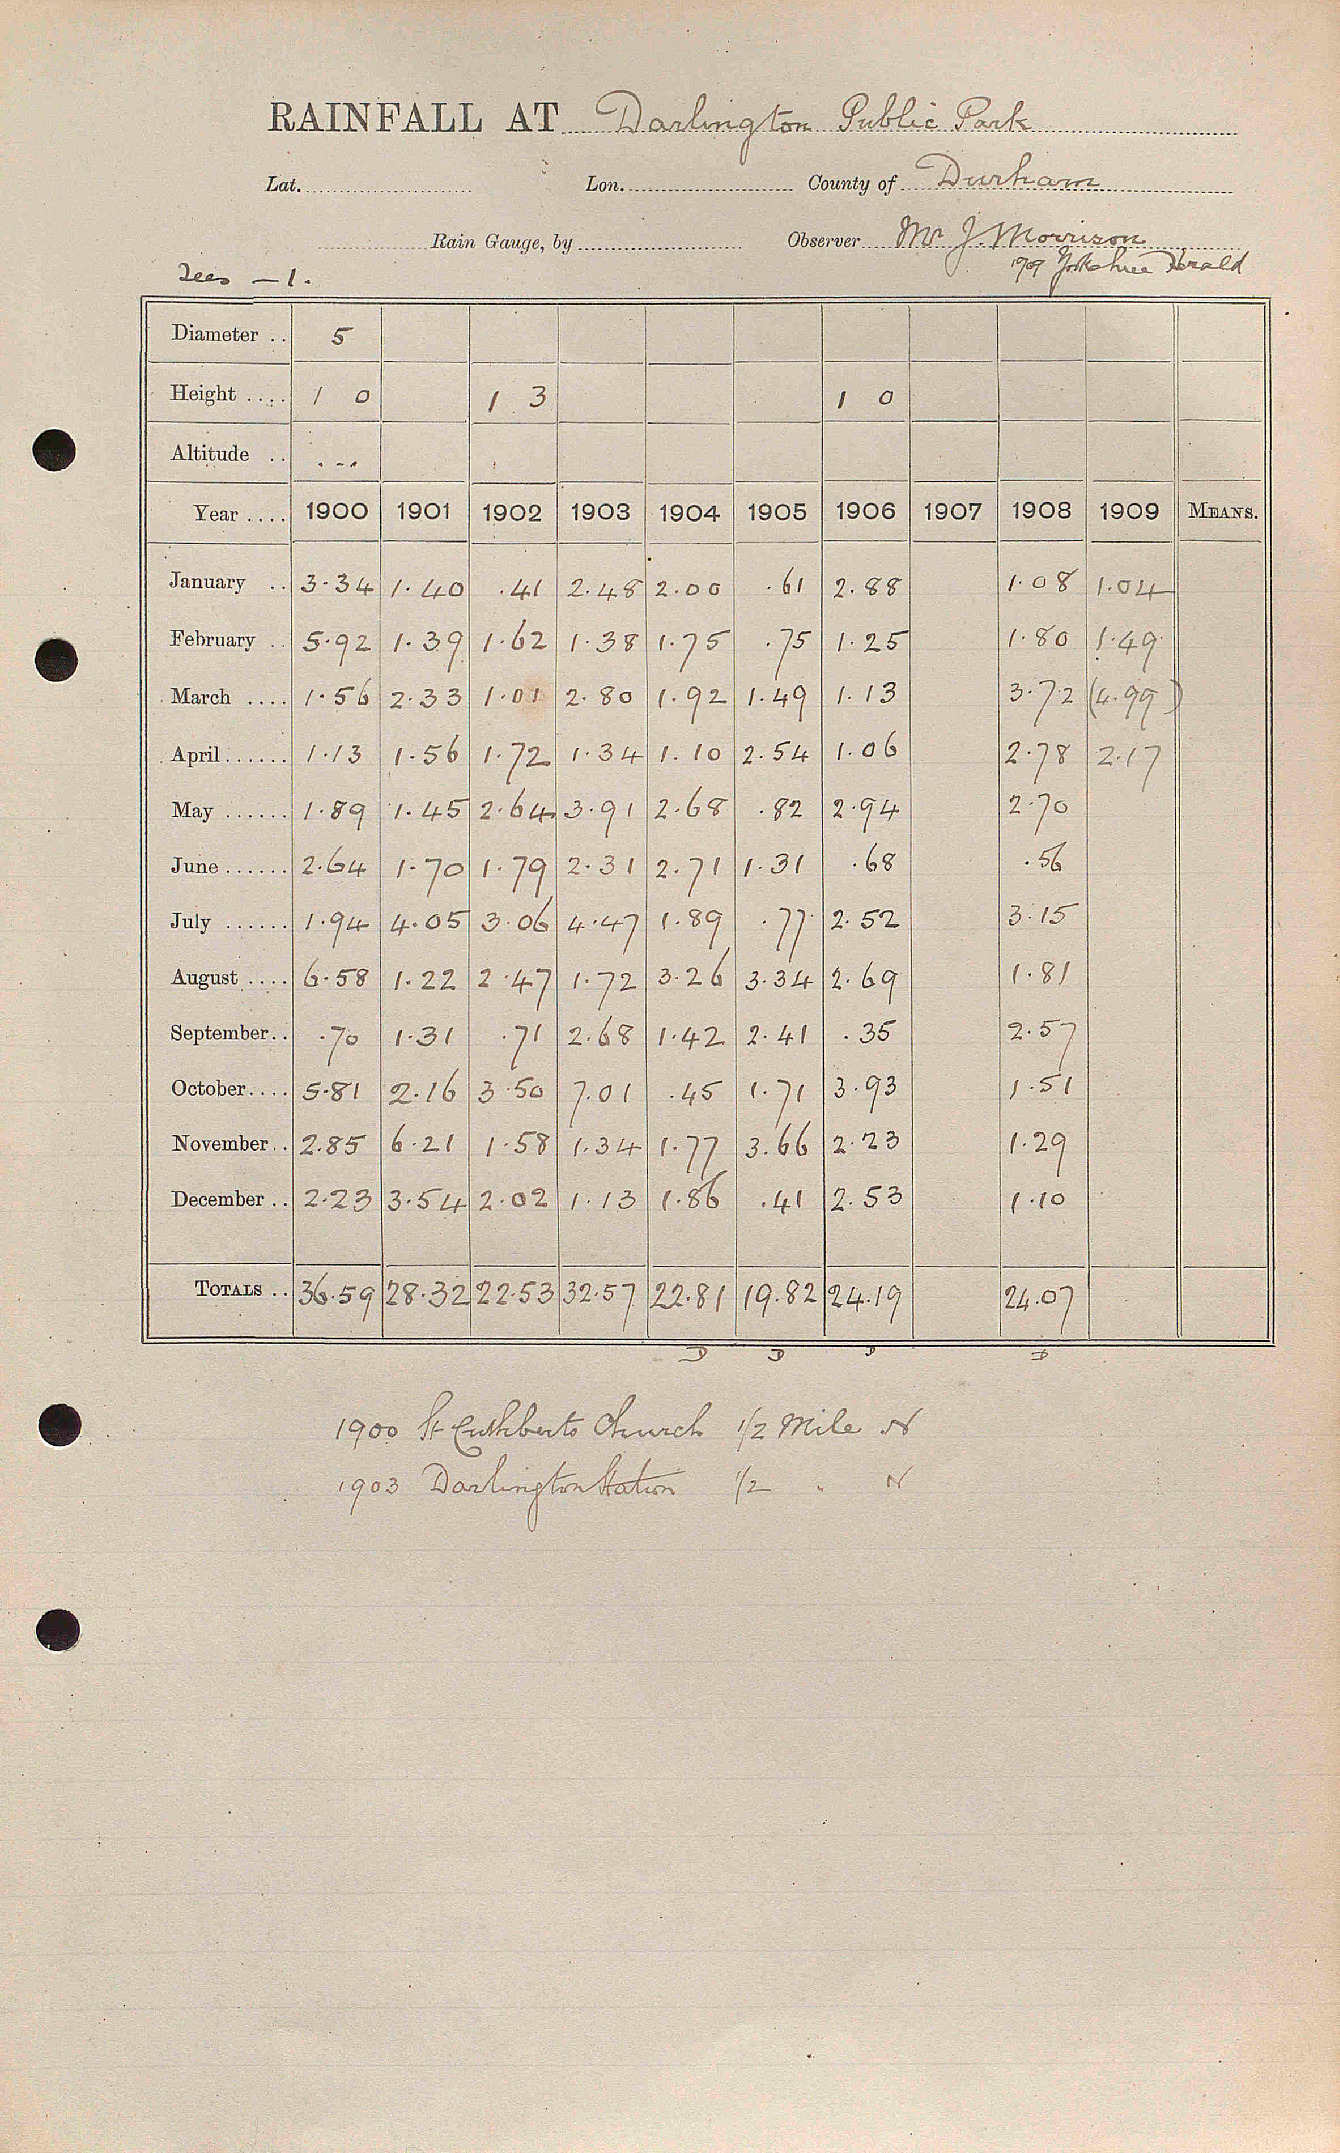 RAINFALL AT Darlington Public Park
Lat. Lon. County of Durham
Rain Gauge, by Observer Mr J. Morrison
Tees — 1. 1909 Yorkshire Herald
Diameter .. 5
Height .... 1 0 1 3 1 0
Altitude .. ...
Year .... 1900 1901 1902 1903 1904 1905 1906 1907 1908 1909 MEANS.
January .. 3.34 1.40 .41 2.48 2.00 .61 2.88 1.08 1.04
February .. 5.92 1.39 1.62 1.38 1.75 .75 1.25 1.80 1.49
March .... 1.56 2.33 1.01 2.80 1.92 1.49 1.13 3.72 (4.99)
April ...... 1.13 1.56 1.72 1.34 1.10 2.54 1.06 2.78 2.17
May ...... 1.89 1.45 2.64 3.91 2.68 .82 2.94 2.70
June ...... 2.64 1.70 1.79 2.31 2.71 1.31 .68 .56
July ...... 1.94 4.05 3.06 4.47 1.89 .77 2.52 3.15
August .... 6.58 1.22 2.47 1.72 3.26 3.34 2.69 1.81
September .. .70 1.31 .71 2.68 1.42 2.41 .35 2.57
October .... 5.81 2.16 3.50 7.01 .45 1.71 3.93 1.51
November .. 2.85 6.21 1.58 1.34 1.77 3.66 2.23 1.29
December .. 2.23 3.54 2.02 1.13 1.86 .41 2.53 1.10
TOTALS .. 36.59 28.32 22.53 32.57 22.81 19.82 24.19 24.07
D D D D
1900 St Cuthberts Church 1/2 Mile N
1903 Darlington Station 1/2 " N